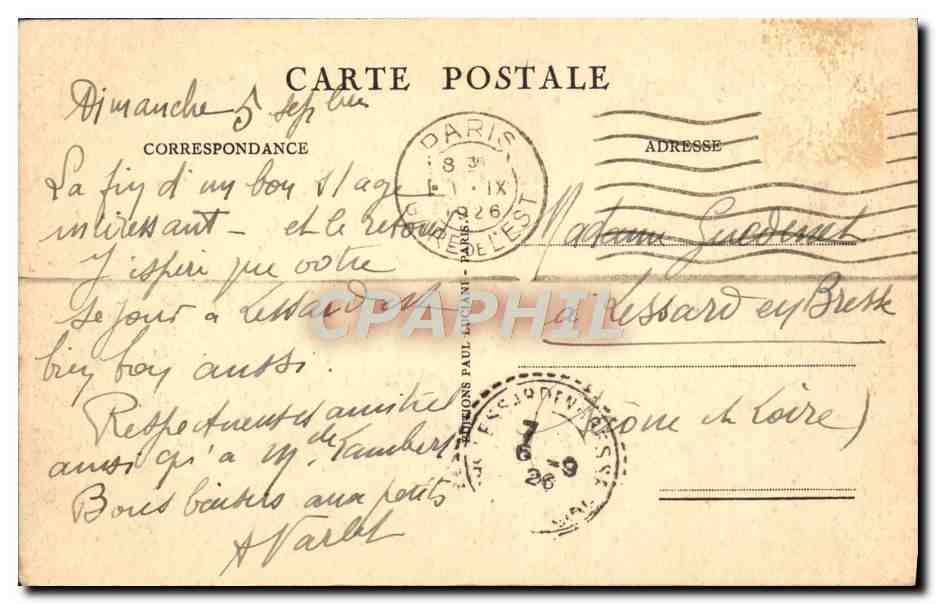 CARTE POSTALE
Dimanche 5 septbre
CORRESPONDANCE
La fin d'un bon stage
intéressant - et le retour
J'espère que votre
séjour à Lessard est
bien bon aussi.
Respectueuses amitiés
ainsi qu'à Mde Lambert
Bons baisers aux petits
A Varlet
PARIS
8 30
IX
26
GARE DE L'EST
EDITIONS PAUL LUCIANI - PARIS
ADRESSE
Madame
à Lessard en Bresse
(Saône et Loire)
LESSARD EN BRESSE
7
6 -9
26
CPAPHIL